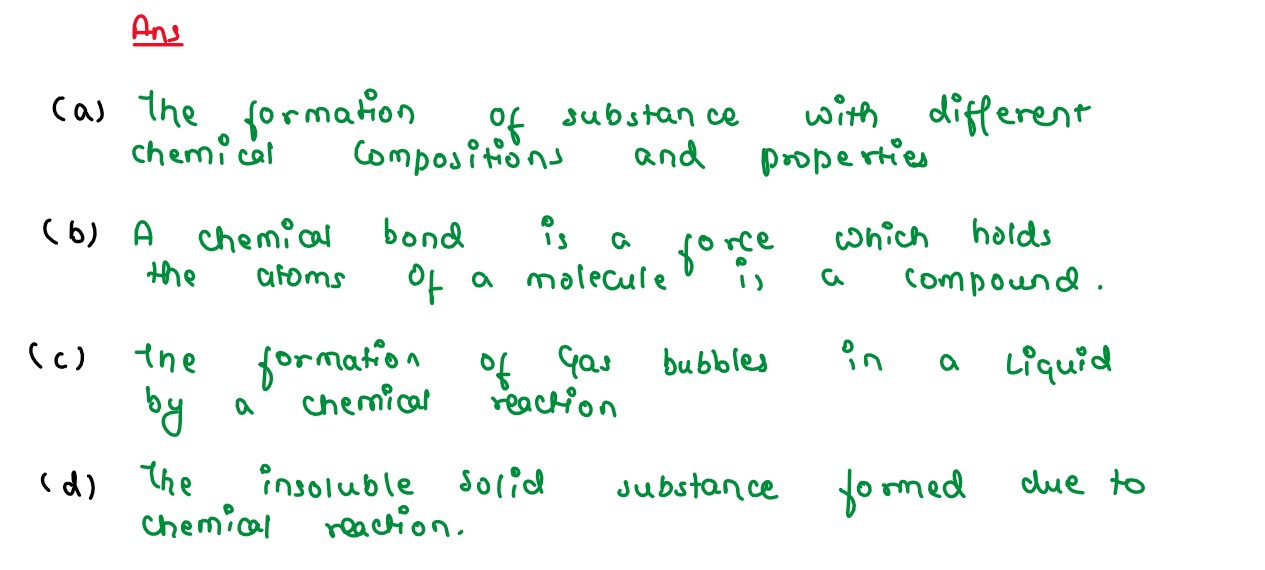 Ans
(a) The formation of substance with different
chemical compositions and properties
(b) A chemical bond is a force which holds
the atoms of a molecule is a compound.
(c) The formation of Gas bubbles in a Liquid
by a chemical reaction
(d) The insoluble solid substance formed due to
chemical reaction.